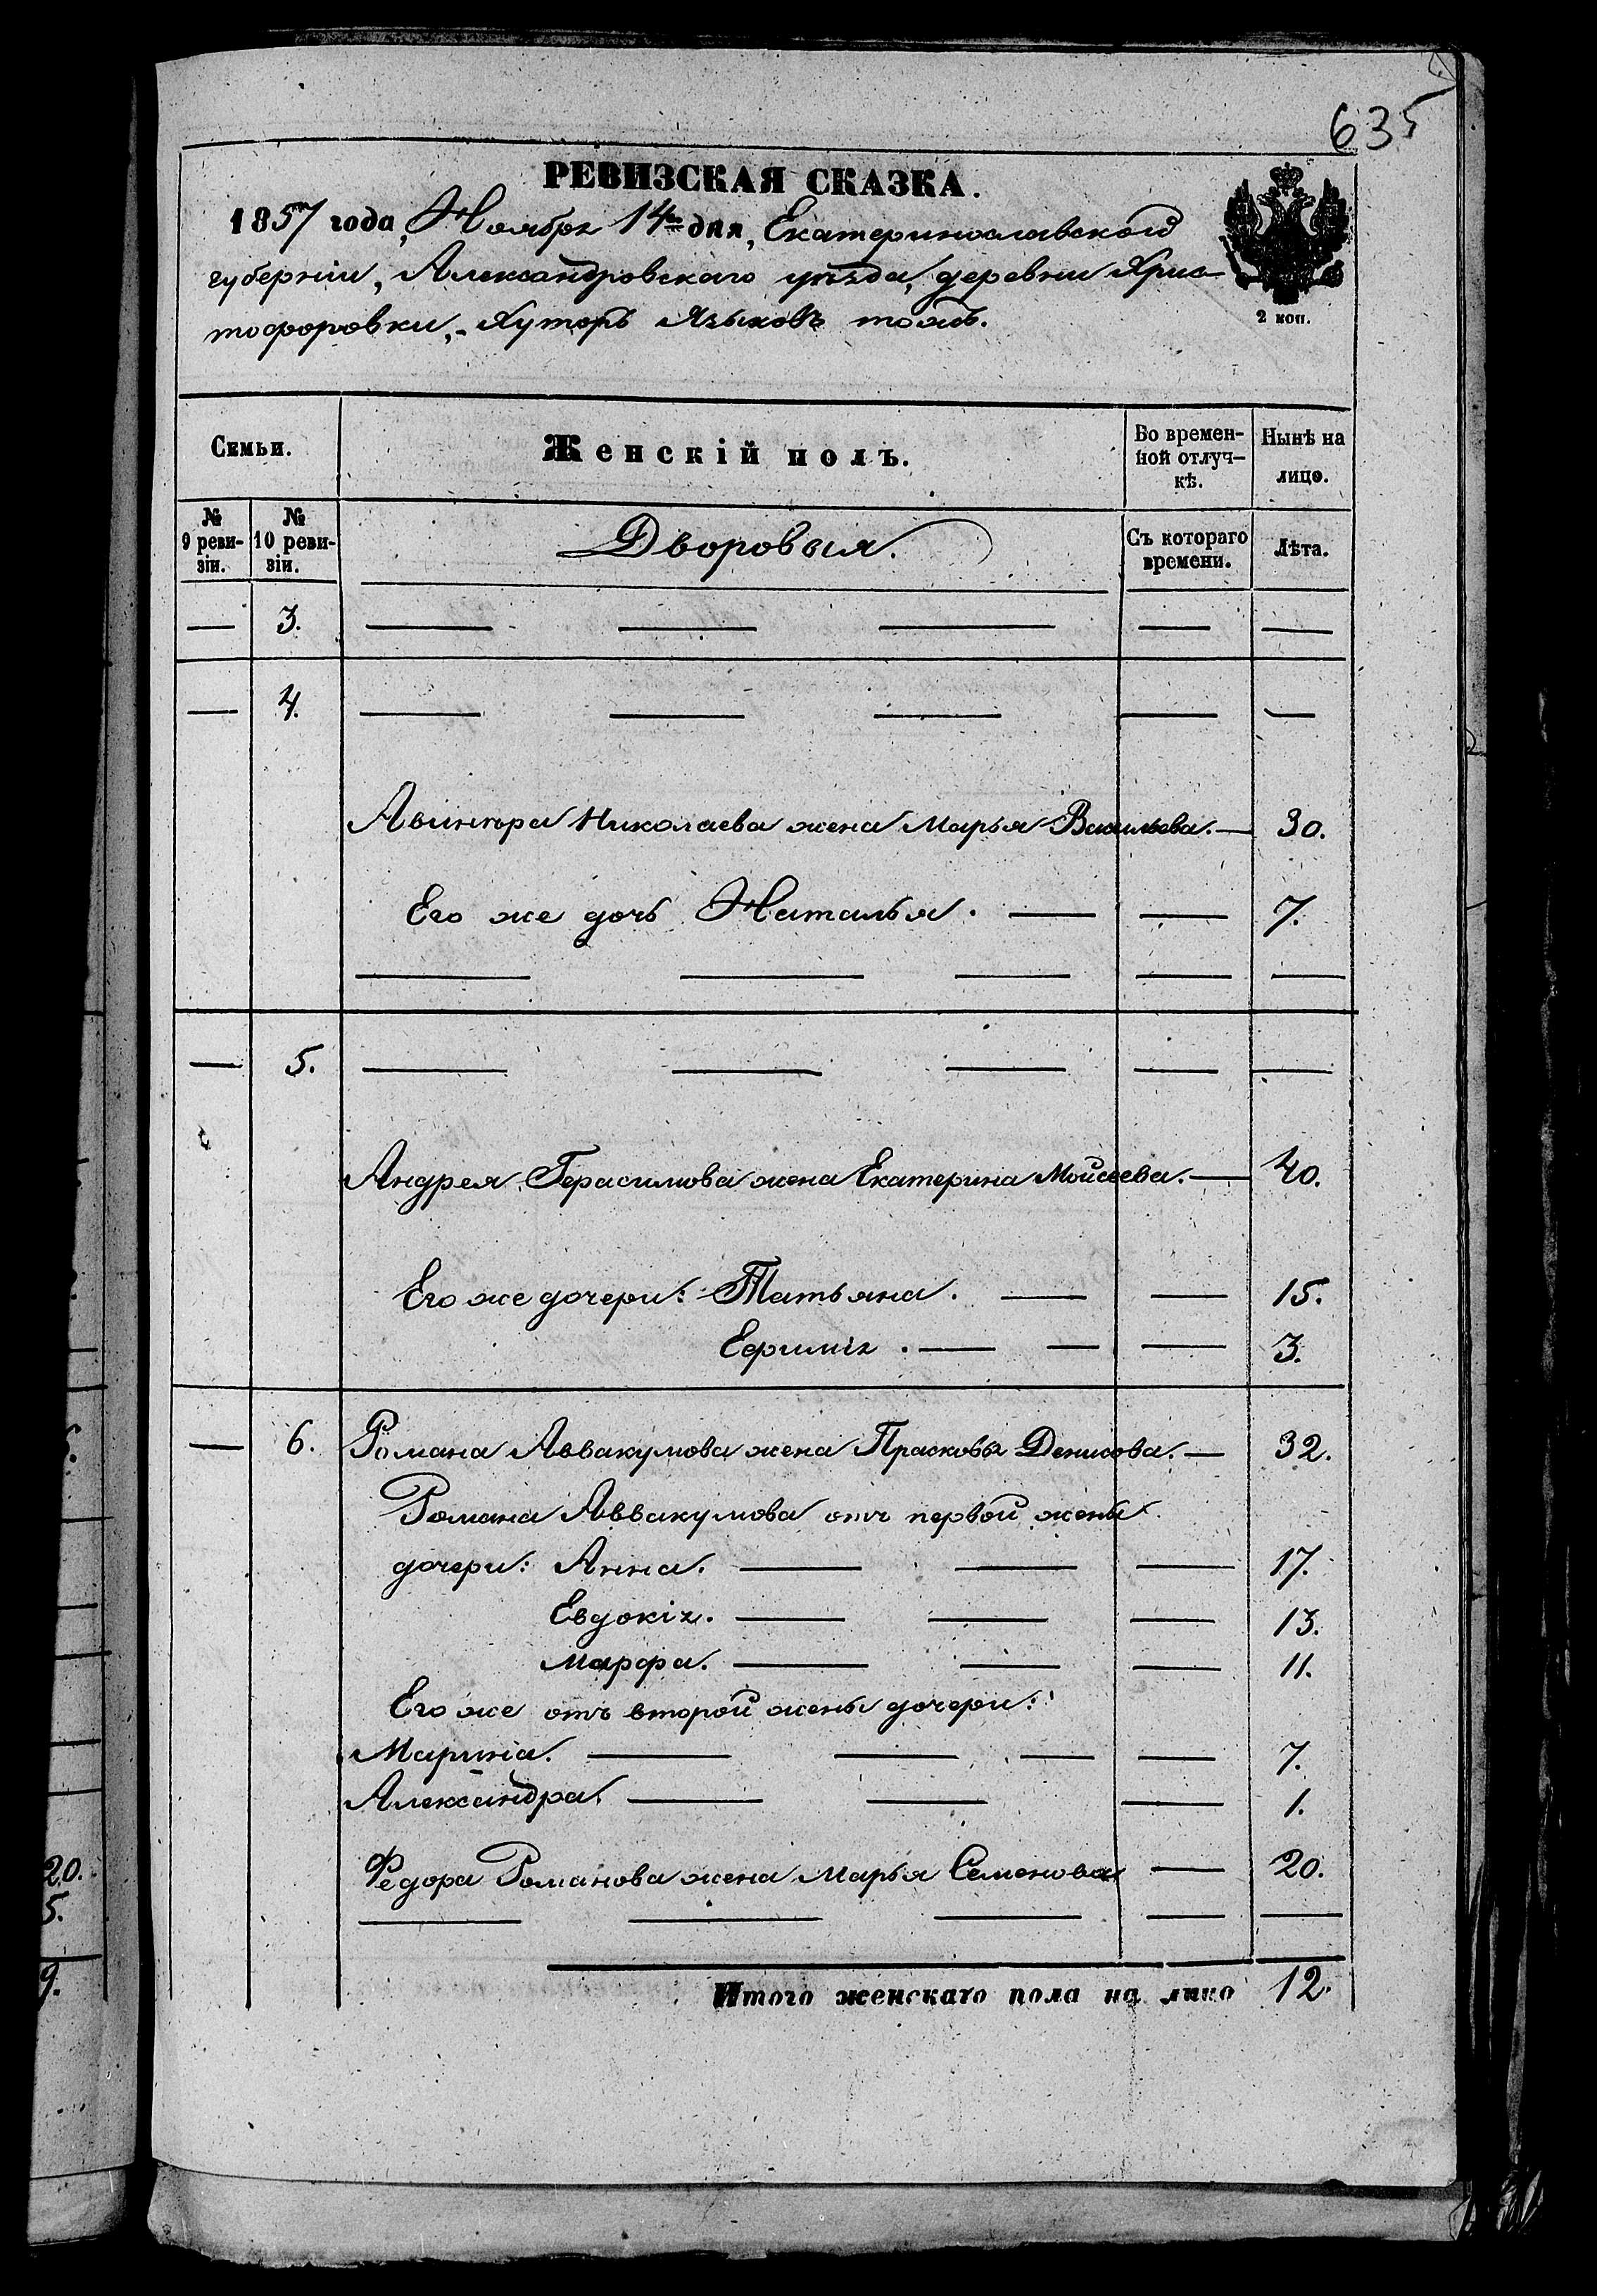 635
РЕВИЗСКАЯ СКАЗКА.
1857 года, Ноября 14го дня, Екатеринославской
губерніи, Александровскаго уѣзда, деревни Хрис-
тофоровки, Хуторъ Языковъ тожъ.
2 коп.
Семьи. Женскій полъ. Во времен- Нынѣ на
ной отлуч- лицо.
кѣ.
№ № Дворовыя. Съ котораго Лѣта.
9 реви- 10 реви- времени.
зіи. зіи.
— 3. — — — — —
— 4. — — — — —
Николаева жена Марья Васильева. — 30.
Его же дочь Наталья. — — 7.
— — — — —
— 5. — — — — —
Андрея Герасимова жена Екатерина Мойсеева. — 40.
Его же дочери: Татьяна. — — 15.
Ефимія. — — — 3.
— 6. Романа Аввакумова жена Прасковья Денисова. — 32.
Романа Аввакумова отъ первой жены
дочери: Анна. — — — 17.
Евдокія. — — — 13.
Марфа. — — — 11.
Его же отъ второй жены дочери:
Марина. — — — — 7.
Александра. — — — 1.
Федора Романова жена Марья Семенова — 20.
— — — — —
Итого женскаго пола на лицо 12.
20.
5.
9.